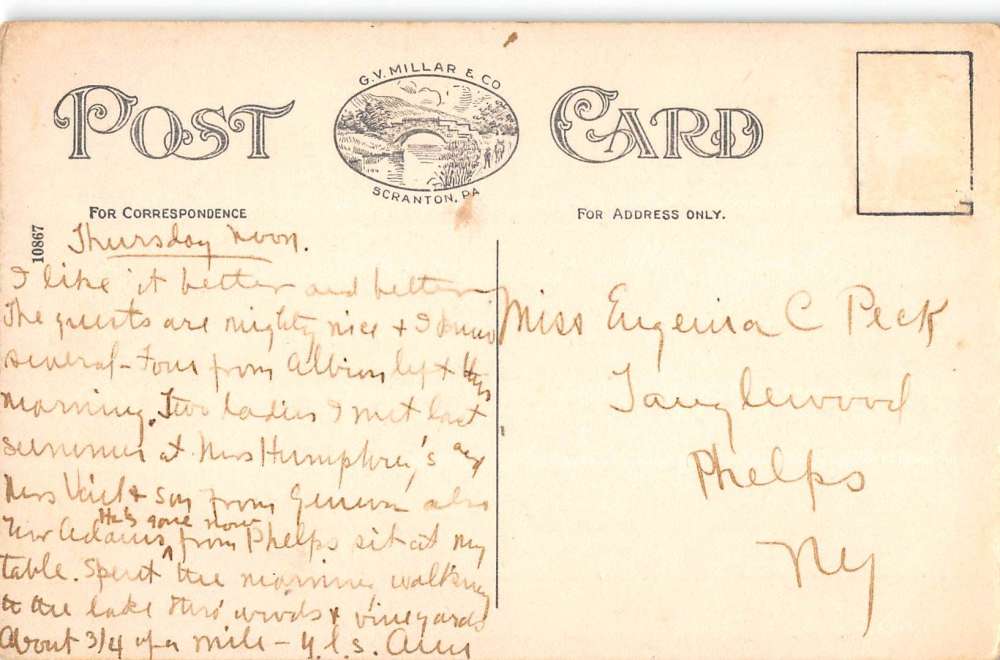 POST CARD
G.V. MILLAR & CO
SCRANTON, PA
FOR CORRESPONDENCE
FOR ADDRESS ONLY.
10867
Thursday noon.
I like it better and better
The guests are mighty nice & I know
several - Four from Albion left this
morning. Two ladies I met last
summer at Mrs Humphrey's are
Mrs & son from Geneva also
Mr Adams ^ He's gone now from Phelps sit at my
table. Spent the morning walking
to the lake thro' woods & vineyards
About 3/4 of a mile - y.l.s.
Miss Eugenia C Peck
Tanglewood
Phelps
NY